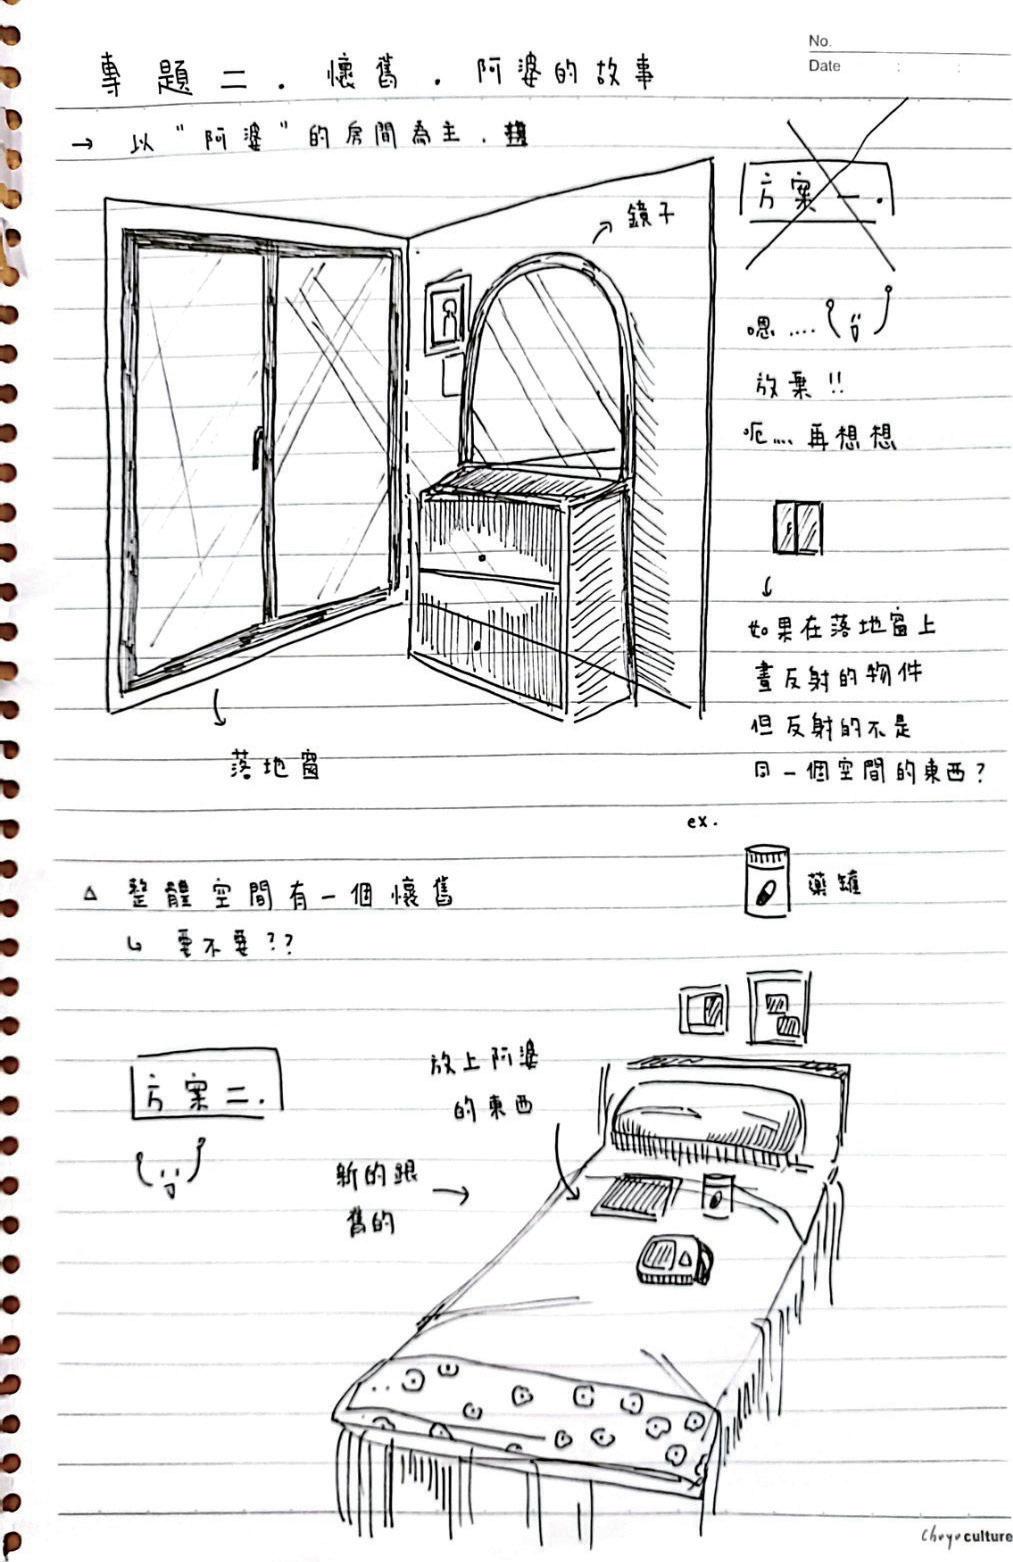 No.
Date : :
專題二．懷舊．阿婆的故事
→ 以"阿婆"的房間為主．
方案一．
鏡子
嗯....
放棄!!
呃.... 再想想
如果在落地窗上
畫反射的物件
但反射的不是
同一個空間的東西?
落地窗
ex.
藥罐
△ 整體空間有一個懷舊
↳ 要不要??
方案二．
放上阿婆
的東西
新的跟
舊的
→
Chuyuculture